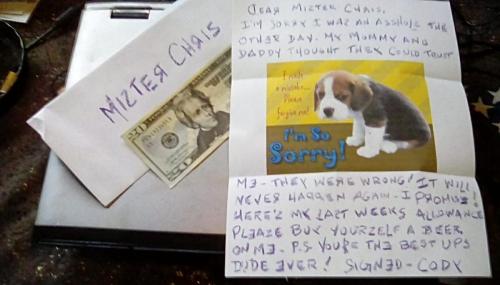 MIZTER CHRIS
20
DEAR MIZTER CHRIS,
I'M SORRY I WAZ AN ASSHOLE THE
OTHER DAY. MY MOMMY AND
DADDY THOUGHT THEY COULD TRUST
I made
a mistake...
Please
forgive me!
I'm So
Sorry!
ME - THEY WERE WRONG! IT WILL
NEVER HAPPEN AGAIN - I PROMISE!
HERE'Z MY LAST WEEKS ALLOWANCE
PLEASE BUY YOURZELF A BEER
ON ME. P.S YOU'RE THE BEST UPS
DUDE EVER! SIGNED - CODY